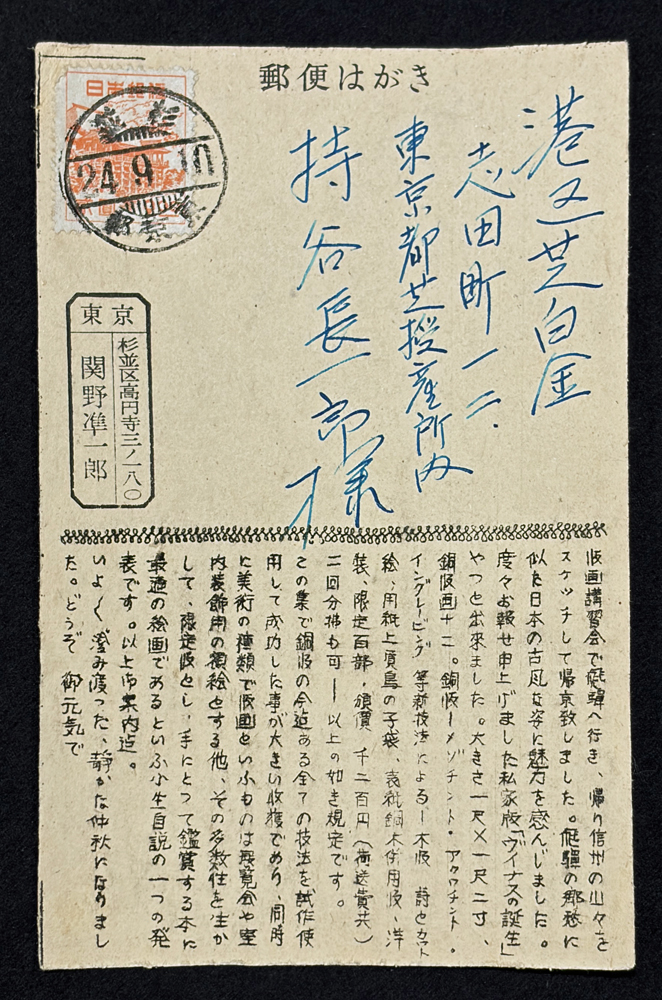 郵便はがき
日本郵便
24.9.10
東京
港区芝白金
志田町一二.
東京都芝授産所内
持谷長一郎様
東京
杉並区高円寺三ノ一八〇
関野凖一郎
版画講習会で飛騨へ行き、帰り信州の山々を
スケッチして帰京致しました。飛騨の郷愁に
似た日本の古風な姿に魅力を感んじました。
度々お報せ申上げました私家版「ヴイナスの誕生」
やつと出来ました。大きさ一尺×一尺二寸、
銅版画十二。銅版ーメゾチント・アクワチント.
イングレービング等新技法によるー木版 詩とカット
絵、用紙上質鳥の子袋、表紙銅木併用版、洋
装、限定百部、頒價 千二百円(荷送費共)
二回分拂も可ー以上の如き規定です。
この集で銅版の今迄ある全ての技法を試作使
用して成功した事が大きい收獲であり、同時
に美術の種類で版画といふものは展覧会や室
内装飾用の額絵とする他、その多数性を生か
して、限定版とし、手にとつて鑑賞する本に
最適の絵画であるといふ小生自説の一つの発
表です。以上御案内迄。
いよ〱澄み渡つた、静かな仲秋になりまし
た。どうぞ御元気で